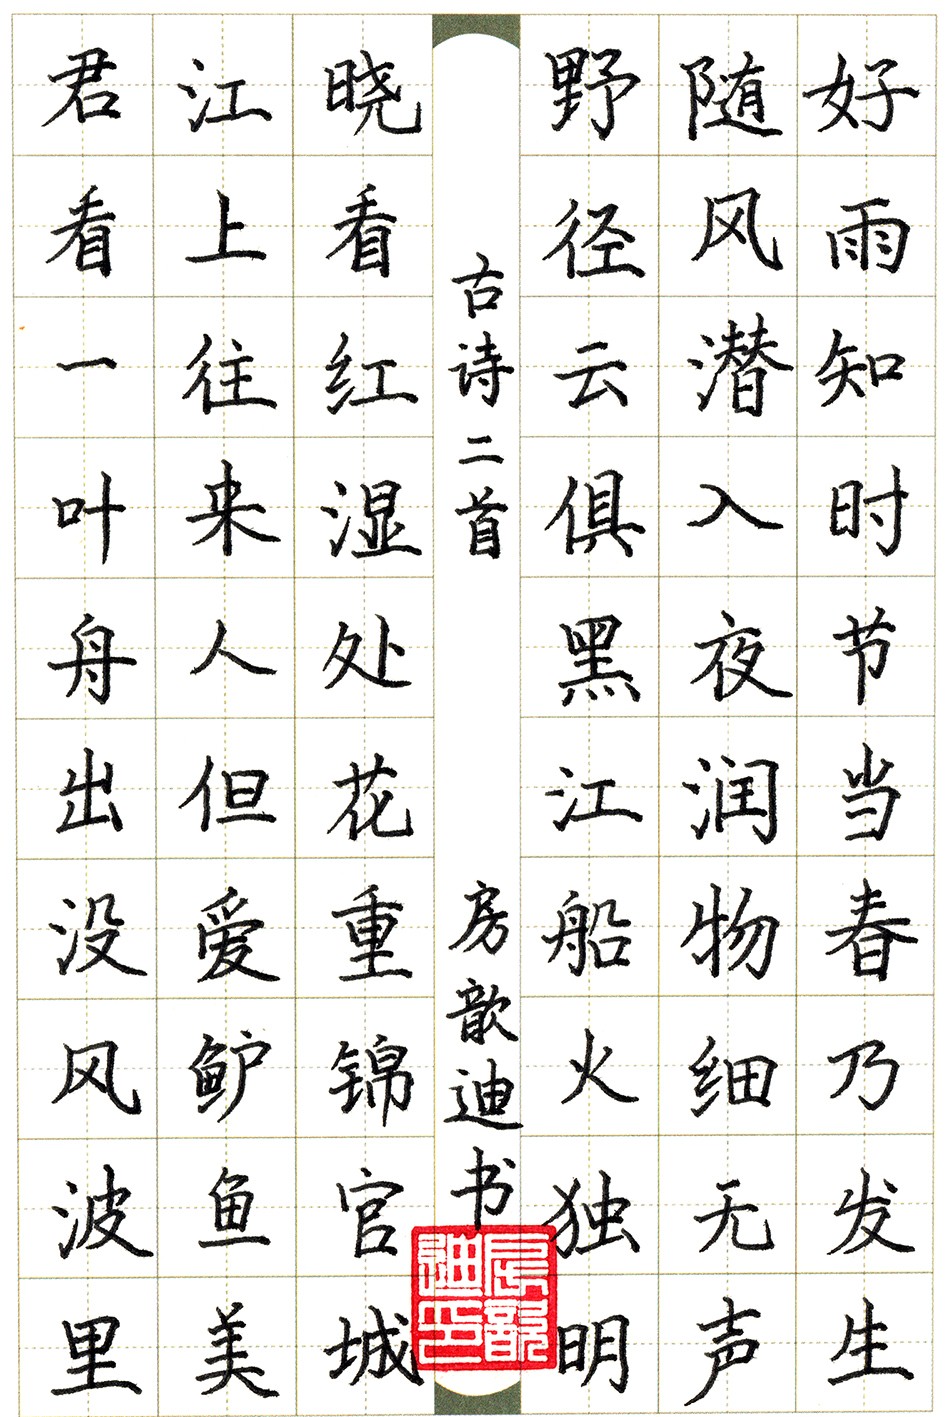 好雨知时节当春乃发生
随风潜入夜润物细无声
野径云俱黑江船火独明
古诗二首
房歆迪书
晓看红湿处花重锦官城
江上往来人但爱鲈鱼美
君看一叶舟出没风波里
房歆迪印